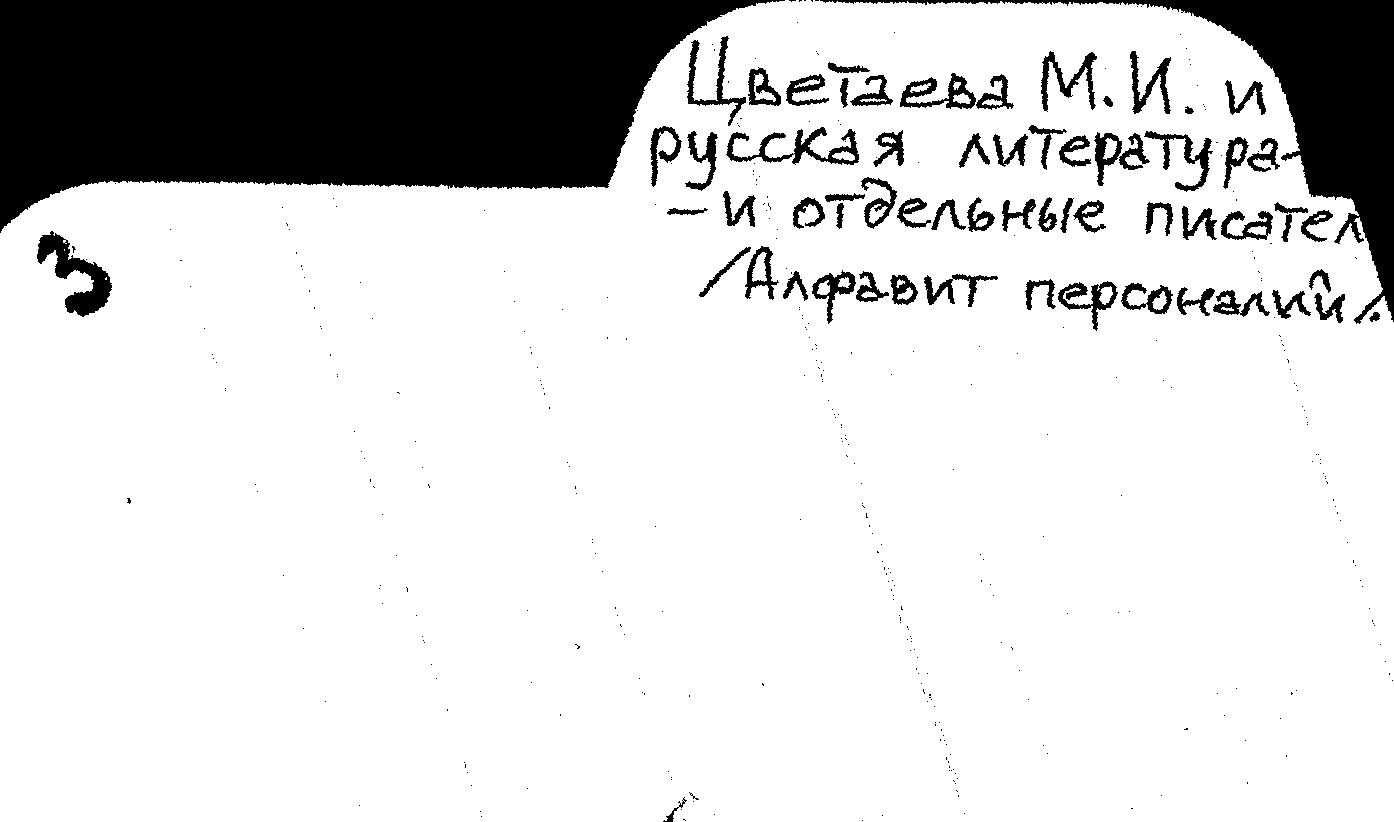 Цветаева М.И. и
русская литература-
- и отдельные писател
3
/Алфавит персоналий/.